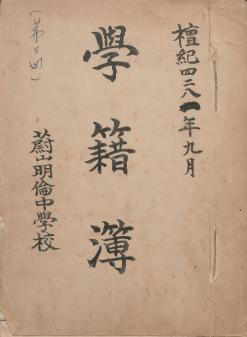 檀紀四二八一年九月
學籍簿
蔚山明倫中學校
(第三回)